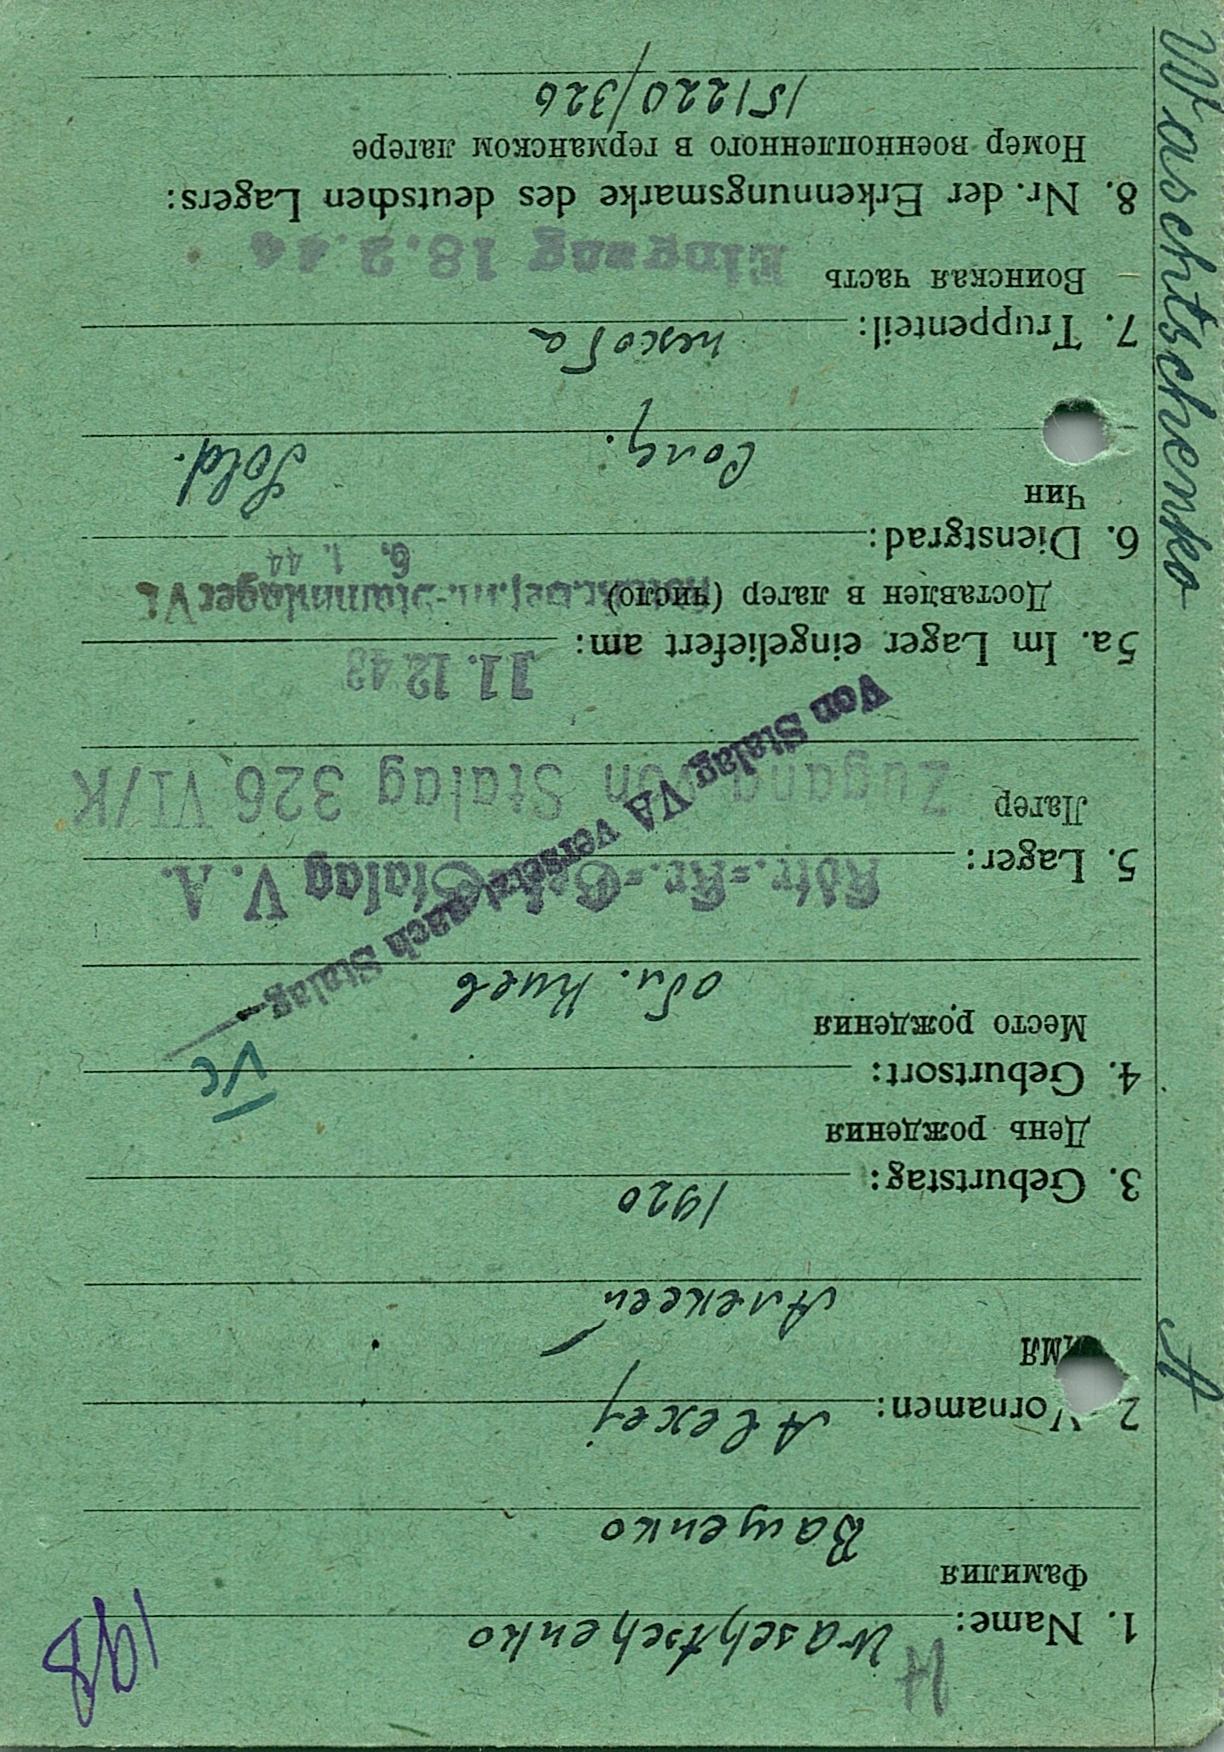 Waschtschenko A
198
1. Name: Waschtschenko
Фамилия
Ващенко
2. Vornamen: Alexej
имя
Алексей
3. Geburtstag:
1920
День рождения
4. Geburtsort:
Vc
Место рождения
обл. Киев
Von Stalag VA versetzt nach Stalag
Kdtr.=Kr.=Gef. Stalag V. A.
5. Lager:
Лагер
Zugang von Stalag 326 VI/K
11. 12. 43
5a. Im Lager eingeliefert am:
Доставлен в лагер (число)
6. 1. 44
6. Dienstgrad:
Чин
Солд. Sold.
7. Truppenteil: пехота
Воинская часть
Eingang 18. 2. 44
8. Nr. der Erkennungsmarke des deutschen Lagers:
Номер военнопленного в германском лагере
151220/326